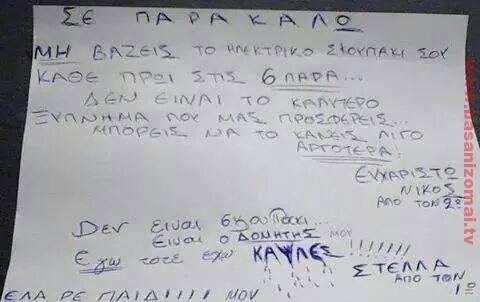 ΣΕ ΠΑΡΑΚΑΛΩ
ΜΗ ΒΑΖΕΙΣ ΤΟ ΗΛΕΚΤΡΙΚΟ ΣΚΟΥΠΑΚΙ ΣΟΥ
ΚΑΘΕ ΠΡΩΙ ΣΤΙΣ 6 ΠΑΡΑ...
ΔΕΝ ΕΙΝΑΙ ΤΟ ΚΑΛΥΤΕΡΟ
ΞΥΠΝΗΜΑ ΠΟΥ ΜΑΣ ΠΡΟΣΦΕΡΕΙΣ...
ΜΠΟΡΕΙΣ ΝΑ ΤΟ ΚΑΝΕΙΣ ΛΙΓΟ
ΑΡΓΟΤΕΡΑ!
ΕΥΧΑΡΙΣΤΩ
ΝΙΚΟΣ
ΑΠΟ ΤΟΝ 2º
Δεν ειναι σκουπακι...
Ειναι ο ΔΟΝΗΤΗΣ ΜΟΥ
Εγω τοτε εχω ΚΑΥΛΕΣ!!!!!!!
ΣΤΕΛΛΑ
ΑΠΟ ΤΟΝ
1º
ΕΛΑ ΡΕ ΠΑΙΔΙ!!!! ΜΟΥ
www.tuasanizomai.tv